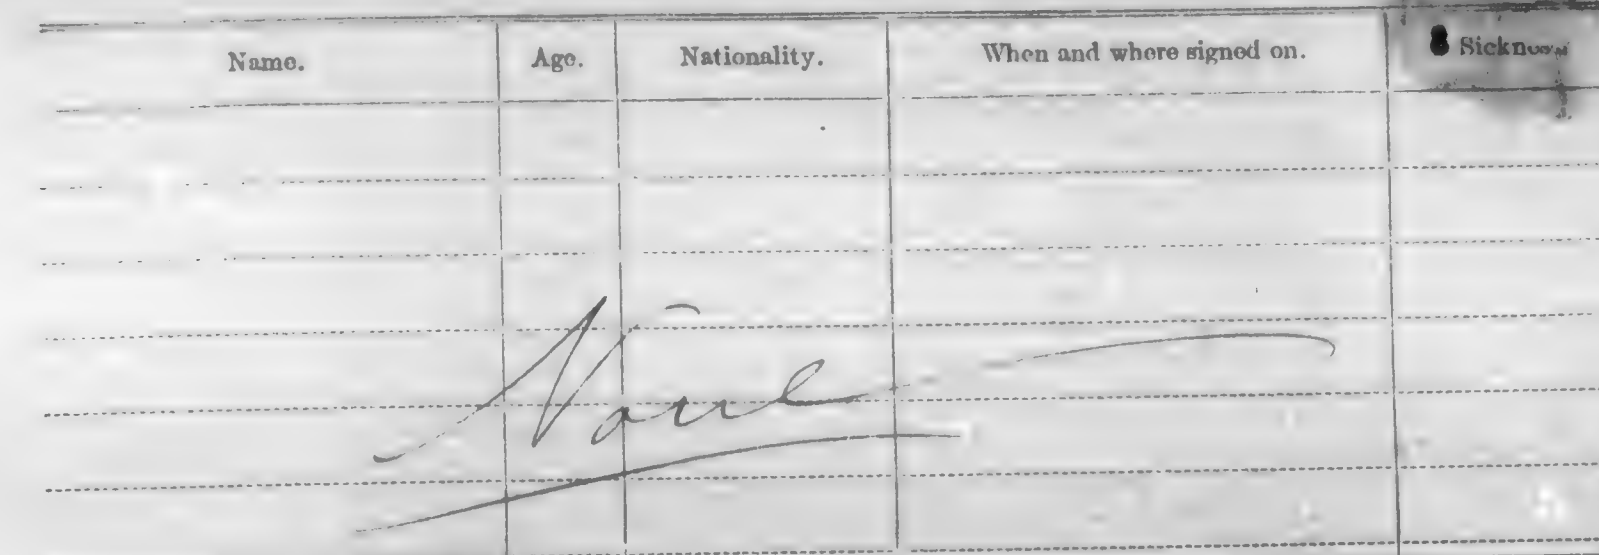 Name. Age. Nationality. When and where signed on. 8 Sickness
None